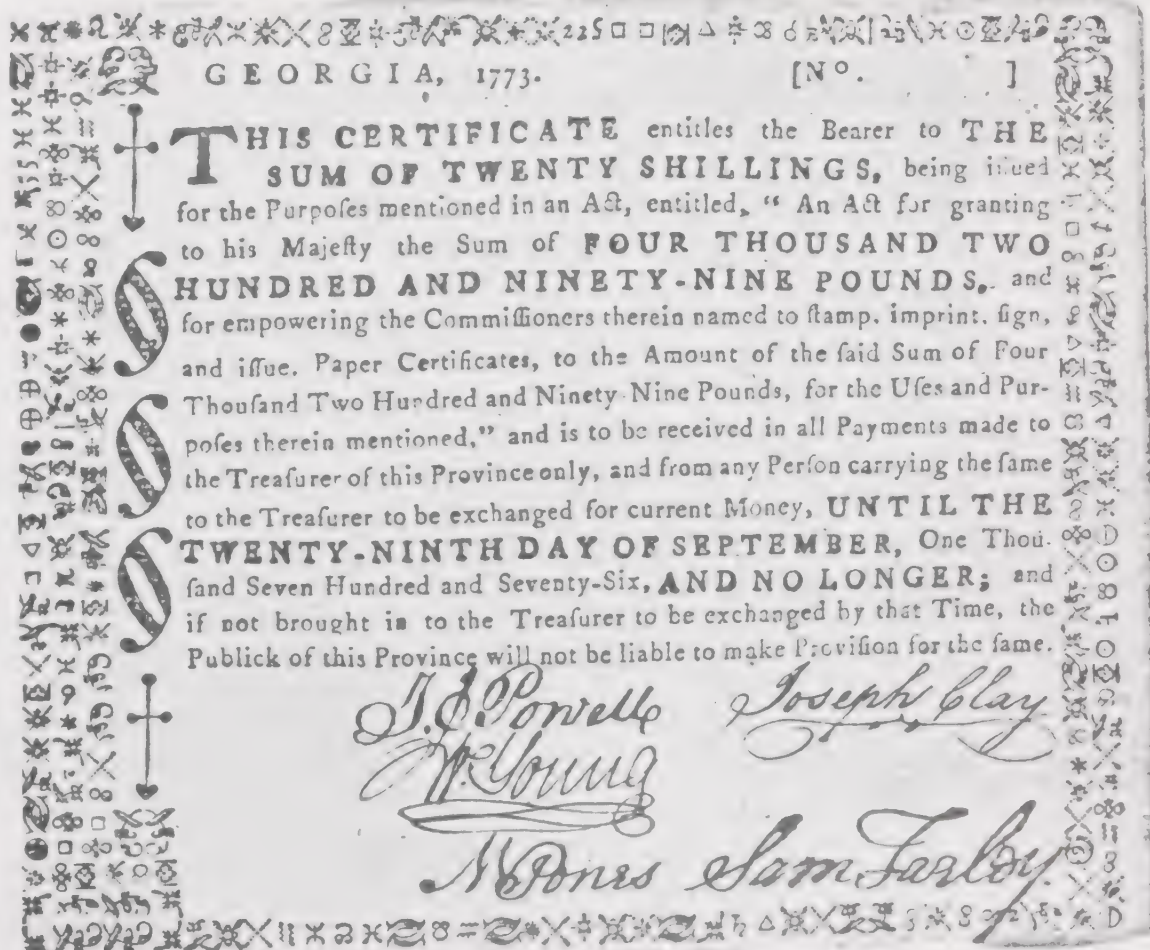 GEORGIA, 1773. [No. ]
THIS CERTIFICATE entitles the Bearer to THE
SUM OF TWENTY SHILLINGS, being iſſued
for the Purpoſes mentioned in an Act, entitled, “ An Act for granting
to his Majeſty the Sum of FOUR THOUSAND TWO
HUNDRED AND NINETY-NINE POUNDS, and
for empowering the Commiſſioners therein named to ſtamp, imprint, ſign,
and iſſue, Paper Certificates, to the Amount of the ſaid Sum of Four
Thouſand Two Hundred and Ninety-Nine Pounds, for the Uſes and Pur-
poſes therein mentioned,” and is to be received in all Payments made to
the Treaſurer of this Province only, and from any Perſon carrying the ſame
to the Treaſurer to be exchanged for current Money, UNTIL THE
TWENTY-NINTH DAY OF SEPTEMBER, One Thou-
ſand Seven Hundred and Seventy-Six, AND NO LONGER; and
if not brought in to the Treaſurer to be exchanged by that Time, the
Publick of this Province will not be liable to make Proviſion for the ſame.
J. E. Powell Joseph Clay
Wm. Young
N Jones Sam Farley